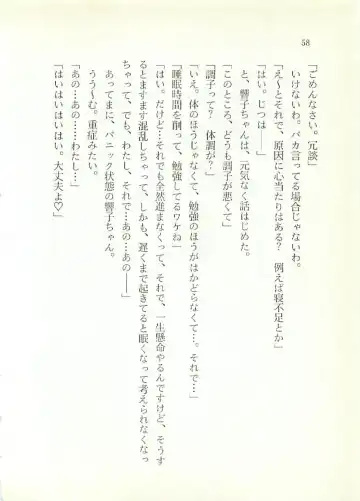 58
「ごめんなさい。冗談」
いけないわ。バカ言ってる場合じゃないわ。
「え〜とそれで、原因に心当たりはある? 例えば寝不足とか」
「はい。じつは――」
と、響子ちゃんは、元気なく話はじめた。
「このところ、どうも調子が悪くて」
「調子って? 体調が?」
「いえ。体のほうじゃなくて、勉強のほうがはかどらなくて…。それで…」
「睡眠時間を削って、勉強してるワケね」
「はい。だけど…それでも全然進まなくって、それで、一生懸命やるんですけど、そうす
るとますます混乱しちゃって、しかも、遅くまで起きてると眠くなって考えられなくなっ
ちゃって、でも、わたし、それで…あの…あの――」
あってまに、パニック状態の響子ちゃん。
ううーむ。重症みたい。
「あの…あの…わたし…」
「はいはいはいはい。大丈夫よ♡」